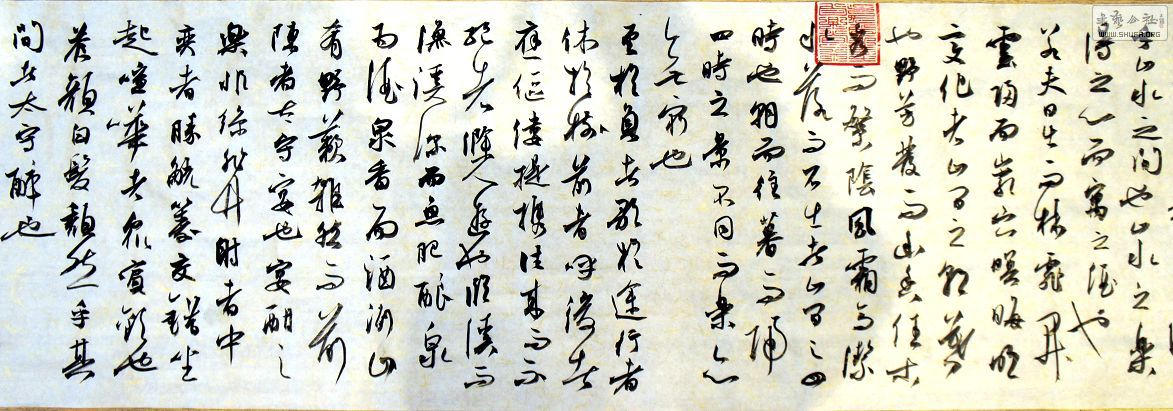 書藝公社
WWW.SHUFA.ORG
乎山水之間也山水之樂
得之心而寓之酒也
若夫日出而林霏開
雲歸而巖穴暝晦明
變化者山間之朝暮
也野芳發而幽香佳木
秀而繁陰風霜高潔
水落而石出者山間之四
時也朝而往暮而歸
四時之景不同而樂亦
無窮也
至於負者歌於途行者
休於樹前者呼後者
應傴僂提攜往來而不
絕者滁人遊也臨溪而
漁溪深而魚肥釀泉
為酒泉香而酒洌山
肴野蔌雜然而前
陳者太守宴也宴酣之
樂非絲非竹射者中
弈者勝觥籌交錯坐
起喧嘩者眾賓歡也
蒼顏白髮頹然乎其
間者太守醉也